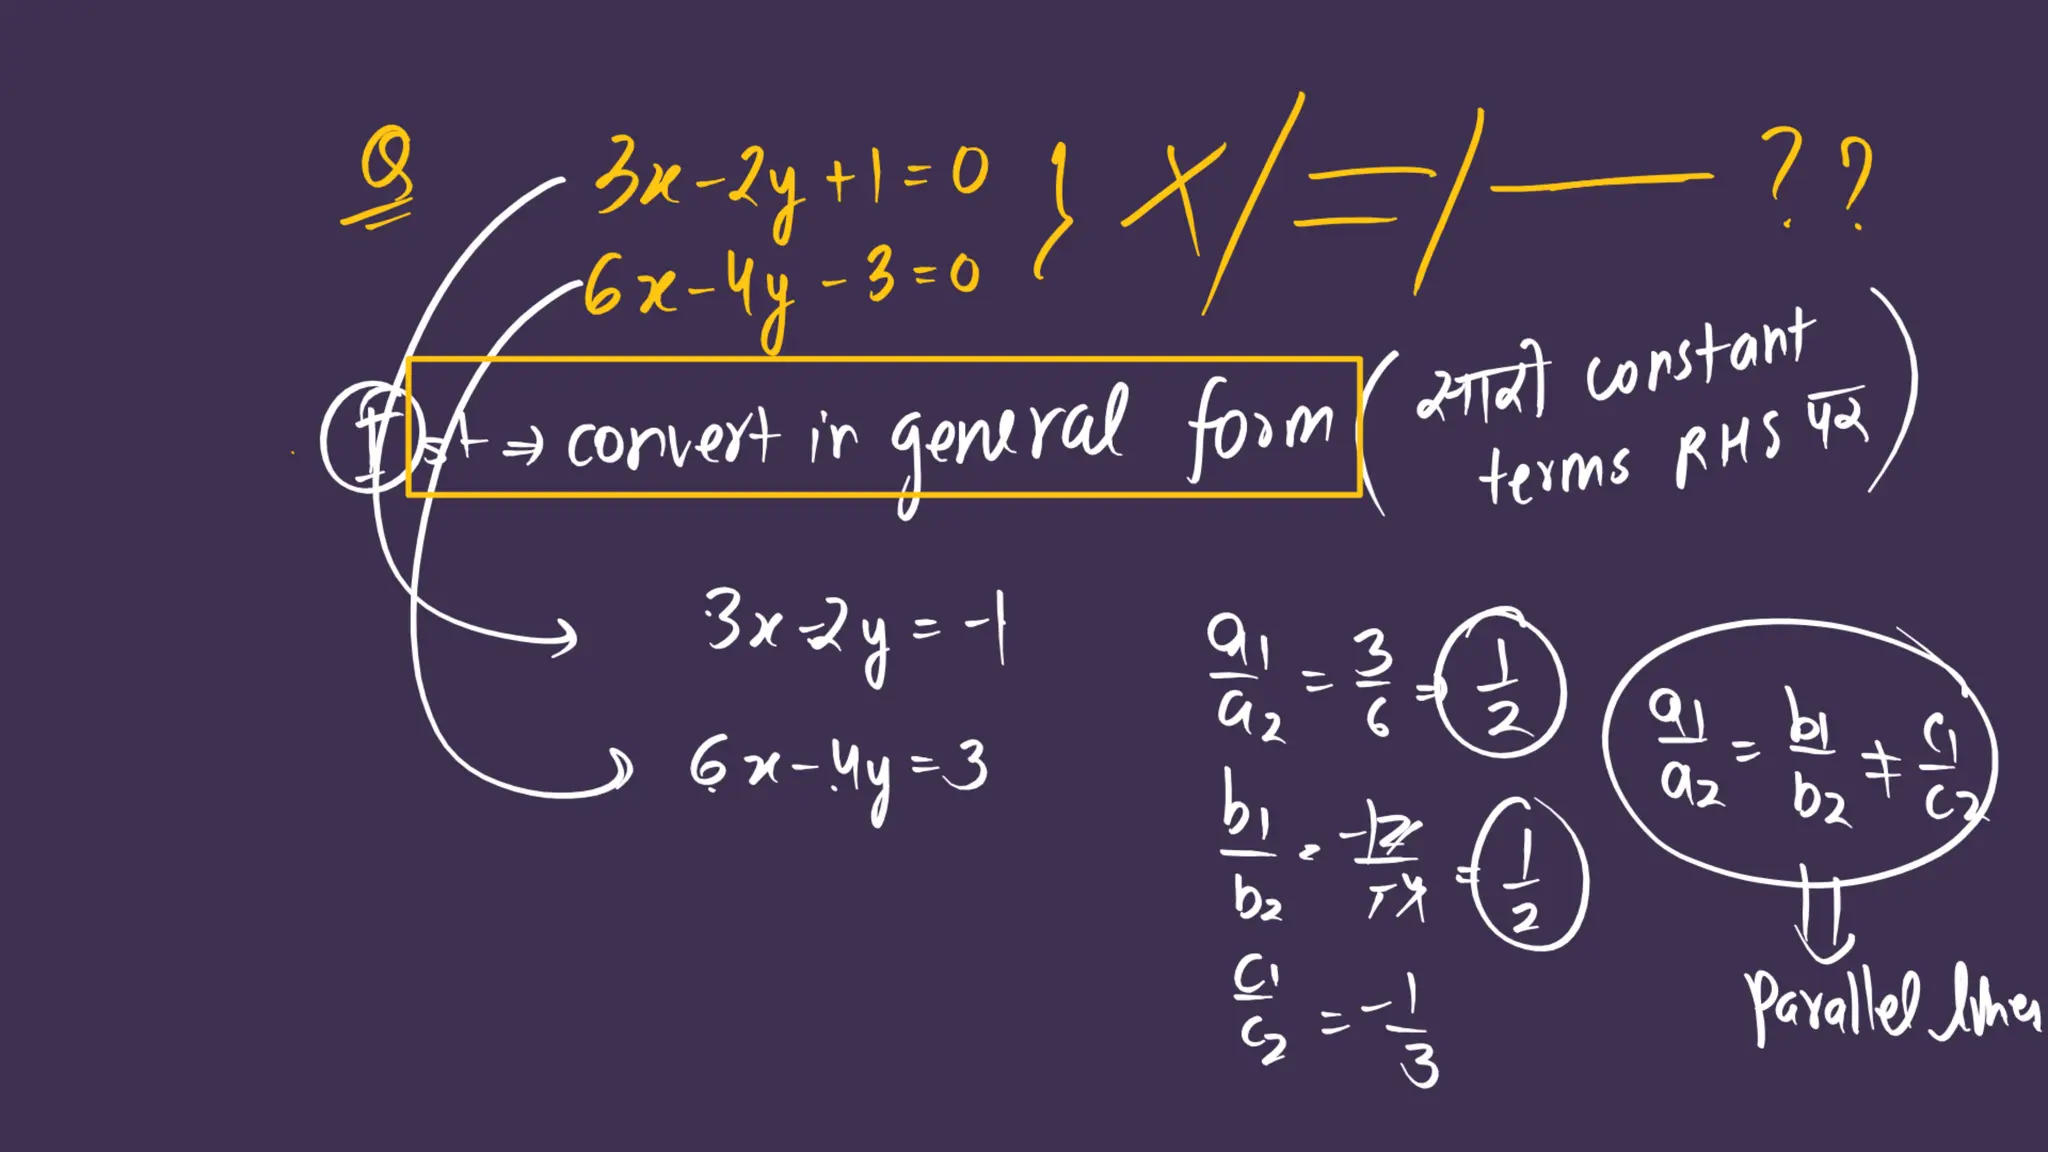 Q 3x-2y+1=0 } X/=/— ??
6x-4y-3=0
Ist ⇒ convert in general form (सारी constant
terms RHS पर)
3x-2y=-1
6x-4y=3
a1/a2 = 3/6 = 1/2
b1/b2 = -2/-4 = 1/2
c1/c2 = -1/3
a1/a2 = b1/b2 ≠ c1/c2
⇓
Parallel lines